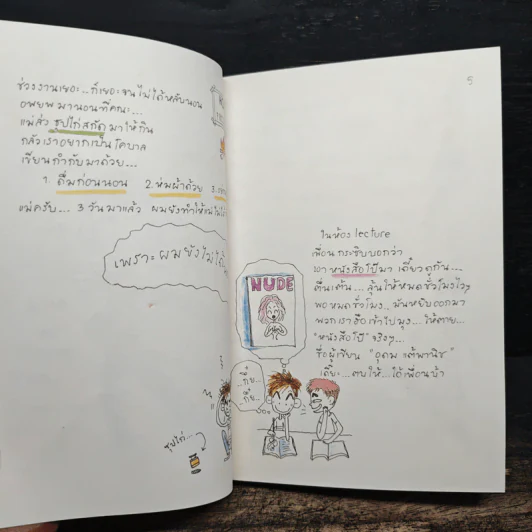 ช่วงงานเยอะ.. ก็เยอะจนไม่ได้หลับนอน
อพยพมานอนที่คณะ...
แม่สั่ง ซุปไก่สกัด มาให้กิน
กลัวเราอยากเป็นโคบาล
เขียนกำกับมาด้วย...
1. ดื่มก่อนนอน 2. ห่มผ้าด้วย 3.
แม่ครับ... 3 วันมาแล้ว ผมยังทำให้แม่ไม่
เพราะผมยังไม่ได้
ซุปไก่...
5
ในห้อง lecture
เพื่อนกระซิบบอกว่า
เอา หนังสือโป๊มา เดี๋ยวดูกัน...
ตื่นเต้น... ลุ้นให้หมดชั่วโมงไวๆ
พอหมดชั่วโมง.. มันหยิบออกมา
พวกเราฮือเข้าไปมุง... ให้ตาย...
"หนังสือโป๊" จริงๆ...
ชื่อผู้เขียน "อุดม แต้พานิช"
เดี๊ยะ... ตบให้... ไอ้เพื่อนบ้า
NUDE
...กึ๋ย...
...กึ๋ย...